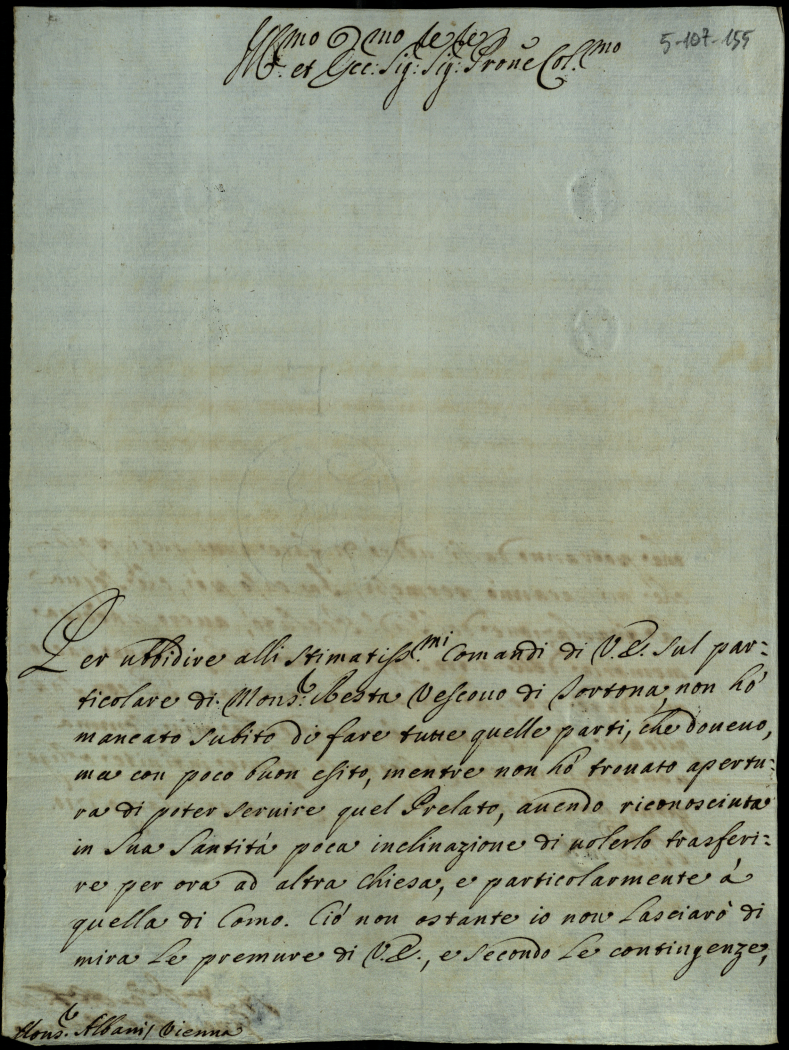 Ill.mo et Ecc.mo Sig.re Sig.re Prone Col.mo
5-107-155
Per ubbidire alli stimatiss.mi Comandi di V.E. sul par=
ticolare di Mons.r Resta Vescovo di Tortona, non hò
mancato subito di fare tutte quelle parti, che dovevo,
ma con poco buon esito, mentre non hò trovato apertu=
ra di poter servire quel Prelato, avendo riconosciuta
in Sua Santità poca inclinazione di volerlo trasferi=
re per ora ad altra Chiesa, e particolarmente à
quella di Como. Ciò non ostante io non lasciarò di
mira le premure di V.E., e secondo le contingenze,
Mons.r Albani, Vienna